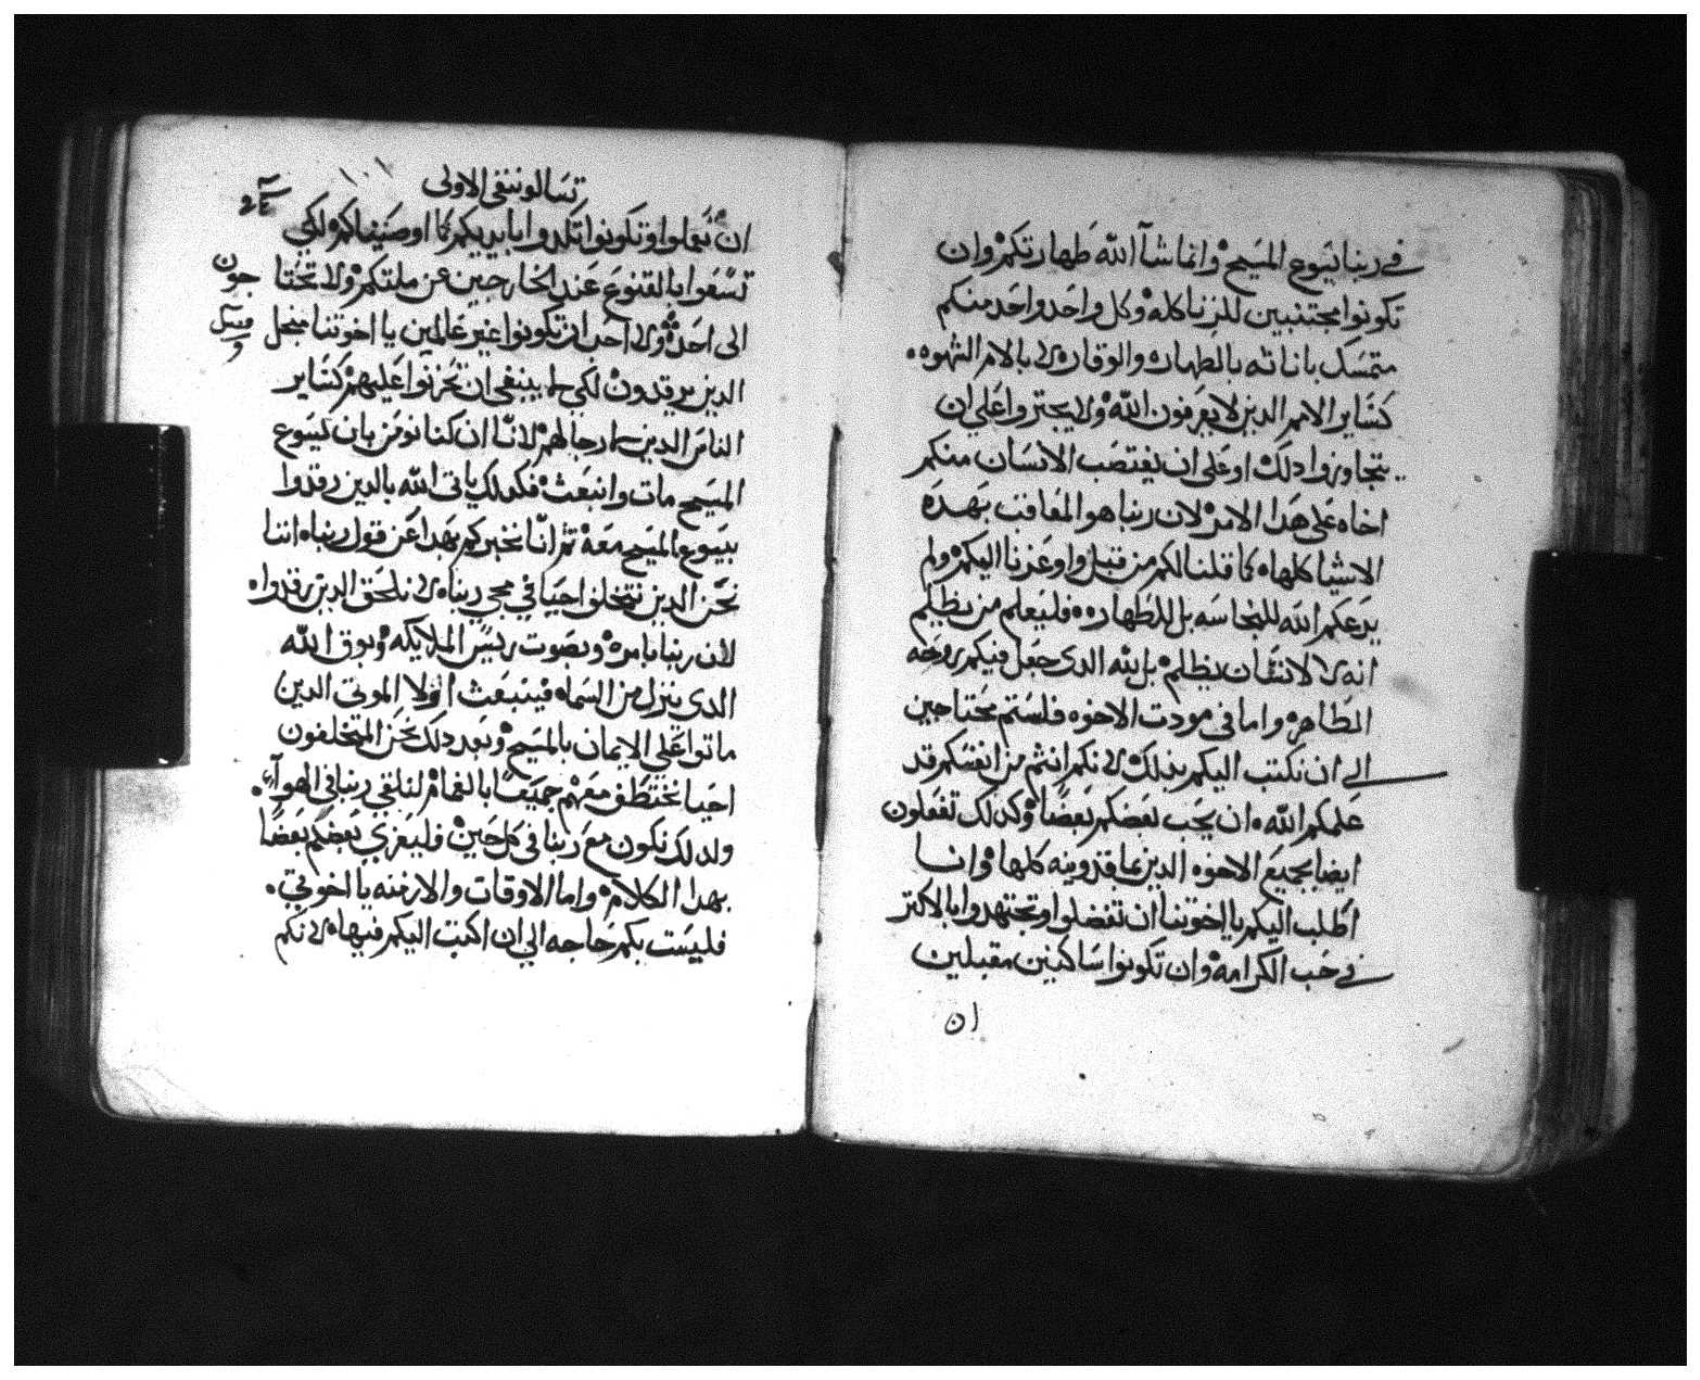 في ربنا يسوع المسيح وانما شآ الله طهارتكم وان
تكونوا مجتنبين للزنا كله وكل واحد واحد منكم
متمسك باناته بالطهاره والوقار لا بالام الشهوه
كساير الامم الدين لا يعرفون الله ولا يجتروا علي ان
يتجاوزوا دلك او على ان يغتصب الانسان منكم
اخاه على هدا الامر لان ربنا هو المعاقب بهده
الاشيا كلها كما قلنا لكم من قبل واوعزنا اليكم ولم
يدعكم الله للنجاسه بل للطهاره فليعلم من يظلم
انه لا لانسان يظلم بل لله الدى جعل فيكم روحه
الطاهره واما في مودت الاخوه فلستم محتاجين
الي ان نكتب اليكم بدلك لانكم انتم من انفسكم قد
علمكم الله ان يحب بعضكم بعضا وكدلك تفعلون
ايضا بجميع الاخوه الدين بماقدونيه كلها وانا
اطلب اليكم يا اخوتنا ان تفضلوا وتجتهدوا بالاكتر
في حب الكرامه وان تكونوا ساكنين مقبلين
ان
تسالونيقى الاولى
١٠١
ان تعملوا وتكونوا تكدوا بايديكم كما اوصيناكم لكي
تسعوا بالقنوع عند الخارجين عن ملتكم ولا تحتا جون
الى احد ولا احب ان تكونوا غير عالمين يا اخوتنا منجل
الدين يرقدون لكي لا ينبغي ان تحزنوا عليهم كساير
الناس الدين لا رجا لهم لانا ان كنا نومن بان يسوع
المسيح مات وانبعث فكدلك ياتى الله بالدين رقدوا
بيسوع المسيح معه تم انا نخبركم بهدا عن قول ربنا اننا
نحن الدين نتخلوا احيا في مجي ربنا لا نلحق الدين رقدوا
لان ربنا بامره وبصوت ريس الملايكه وبوق الله
الدى ينزل من السماه فينبعث اولا الموتى الدين
ماتوا على الايمان بالمسيح وبعد دلك نحن المتخلفون
احيا نختطف معهم جميعا بالغمام لنلقي ربنا في الهوآء
ولدلك نكون مع ربنا في كل حين فليعزي بعضكم بعضا
بهدا الكلام واما الاوقات والازمنه يا اخوتي
فليست بكم حاجه الي ان اكتب اليكم فيها لانكم